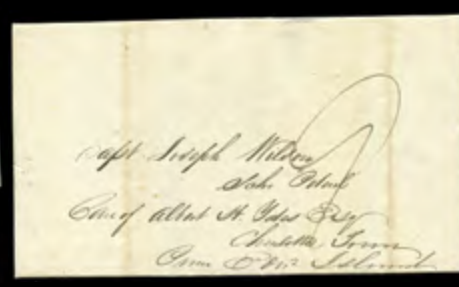 Capt Joseph Wilson
Schr
Care of Albert H. Yates Esq
Charlotte Town
Prince Edwd Island